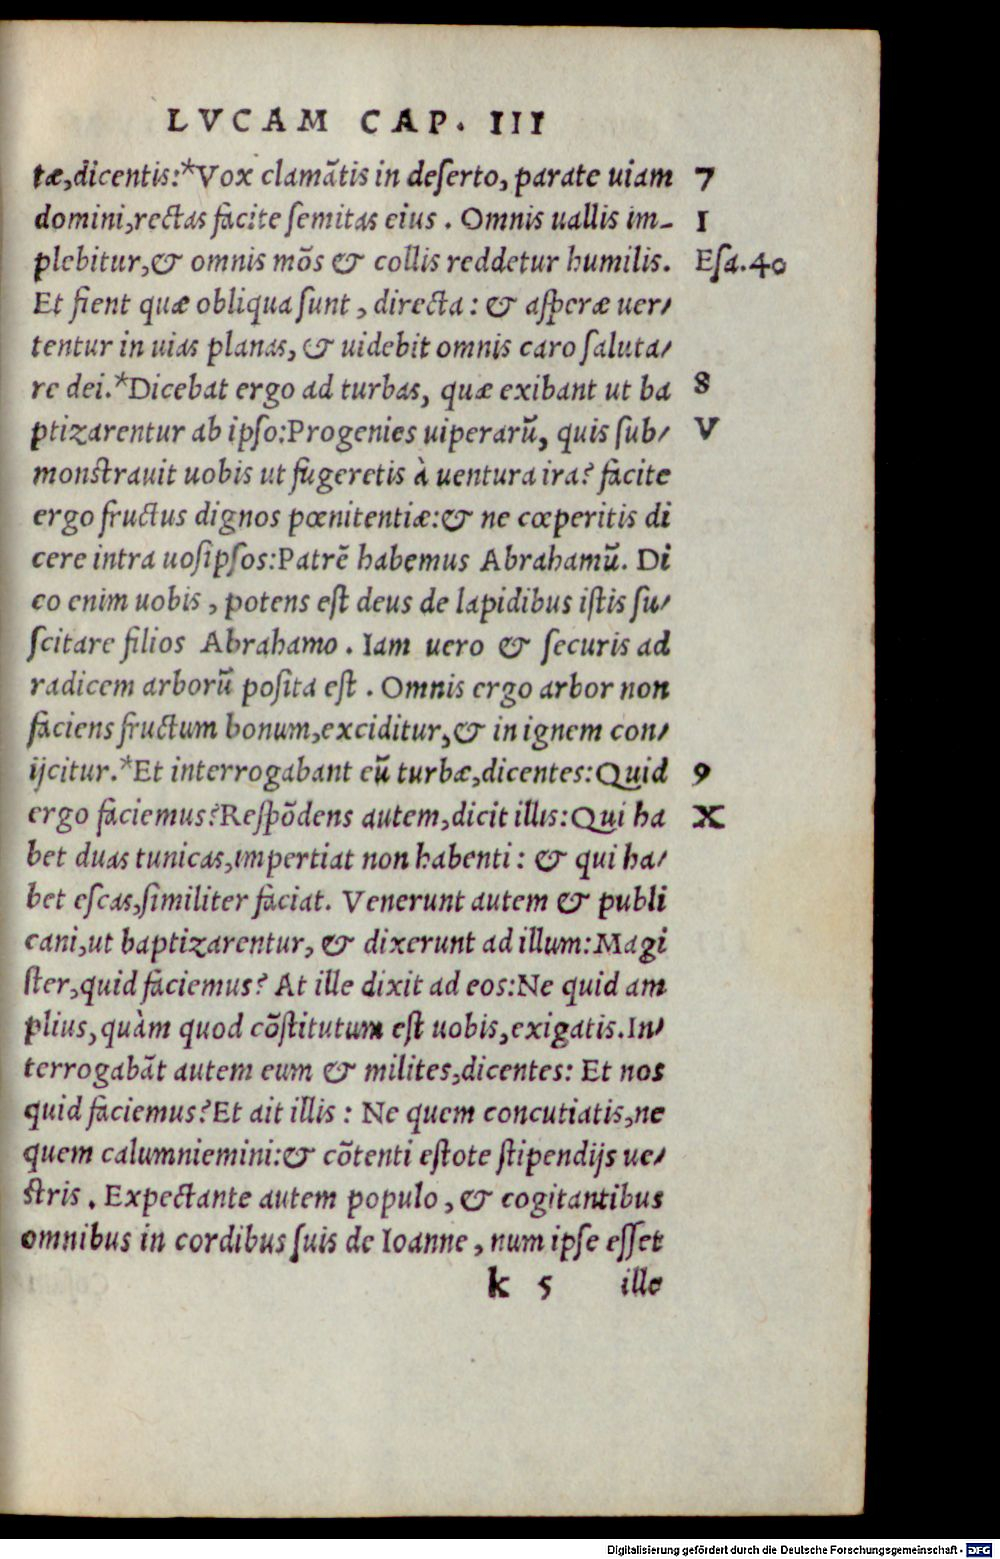 LVCAM CAP. III
tæ,dicentis:*Vox clamãtis in deſerto, parate uiam 7
domini,rectas facite ſemitas eius . Omnis uallis im- I
plebitur,& omnis mõs & collis reddetur humilis. Eſa.40
Et fient quæ obliqua ſunt , directa : & aſperæ uer/
tentur in uias planas, & uidebit omnis caro ſaluta/
re dei.*Dicebat ergo ad turbas, quæ exibant ut ba 8
ptizarentur ab ipſo:Progenies uiperarũ, quis ſub/ V
monſtrauit uobis ut fugeretis à uentura ira? facite
ergo fructus dignos pœnitentiæ:& ne cœperitis di
cere intra uoſipſos:Patrẽ habemus Abrahamũ. Di
co enim uobis , potens eſt deus de lapidibus iſtis ſu/
ſcitare filios Abrahamo . Iam uero & ſecuris ad
radicem arborũ poſita eſt . Omnis ergo arbor non
faciens fructum bonum,exciditur,& in ignem con/
ijcitur.*Et interrogabant eũ turbæ,dicentes:Quid 9
ergo faciemus?Reſpõdens autem,dicit illis:Qui ha X
bet duas tunicas,impertiat non habenti : & qui ha/
bet eſcas,ſimiliter faciat. Venerunt autem & publi
cani,ut baptizarentur, & dixerunt ad illum:Magi
ſter,quid faciemus? At ille dixit ad eos:Ne quid am
plius,quàm quod cõſtitutum eſt uobis,exigatis.In/
terrogabãt autem eum & milites,dicentes: Et nos
quid faciemus?Et ait illis : Ne quem concutiatis,ne
quem calumniemini:& cõtenti eſtote ſtipendijs ue/
ſtris . Expectante autem populo , & cogitantibus
omnibus in cordibus ſuis de Ioanne , num ipſe eſſet
k 5 ille
Digitalisierung gefördert durch die Deutsche Forschungsgemeinschaft - DFG